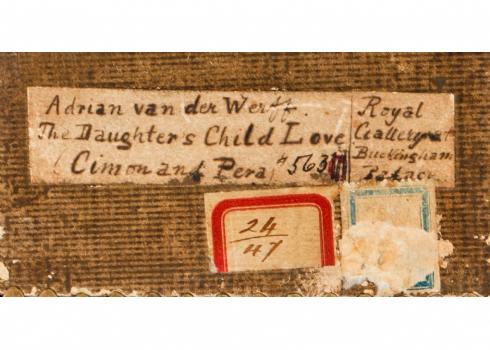 Adrian van der Werff.
The Daughter's Child Love
(Cimon and Pera) # 563
Royal
Gallery at
Buckingham
Palace
24
47